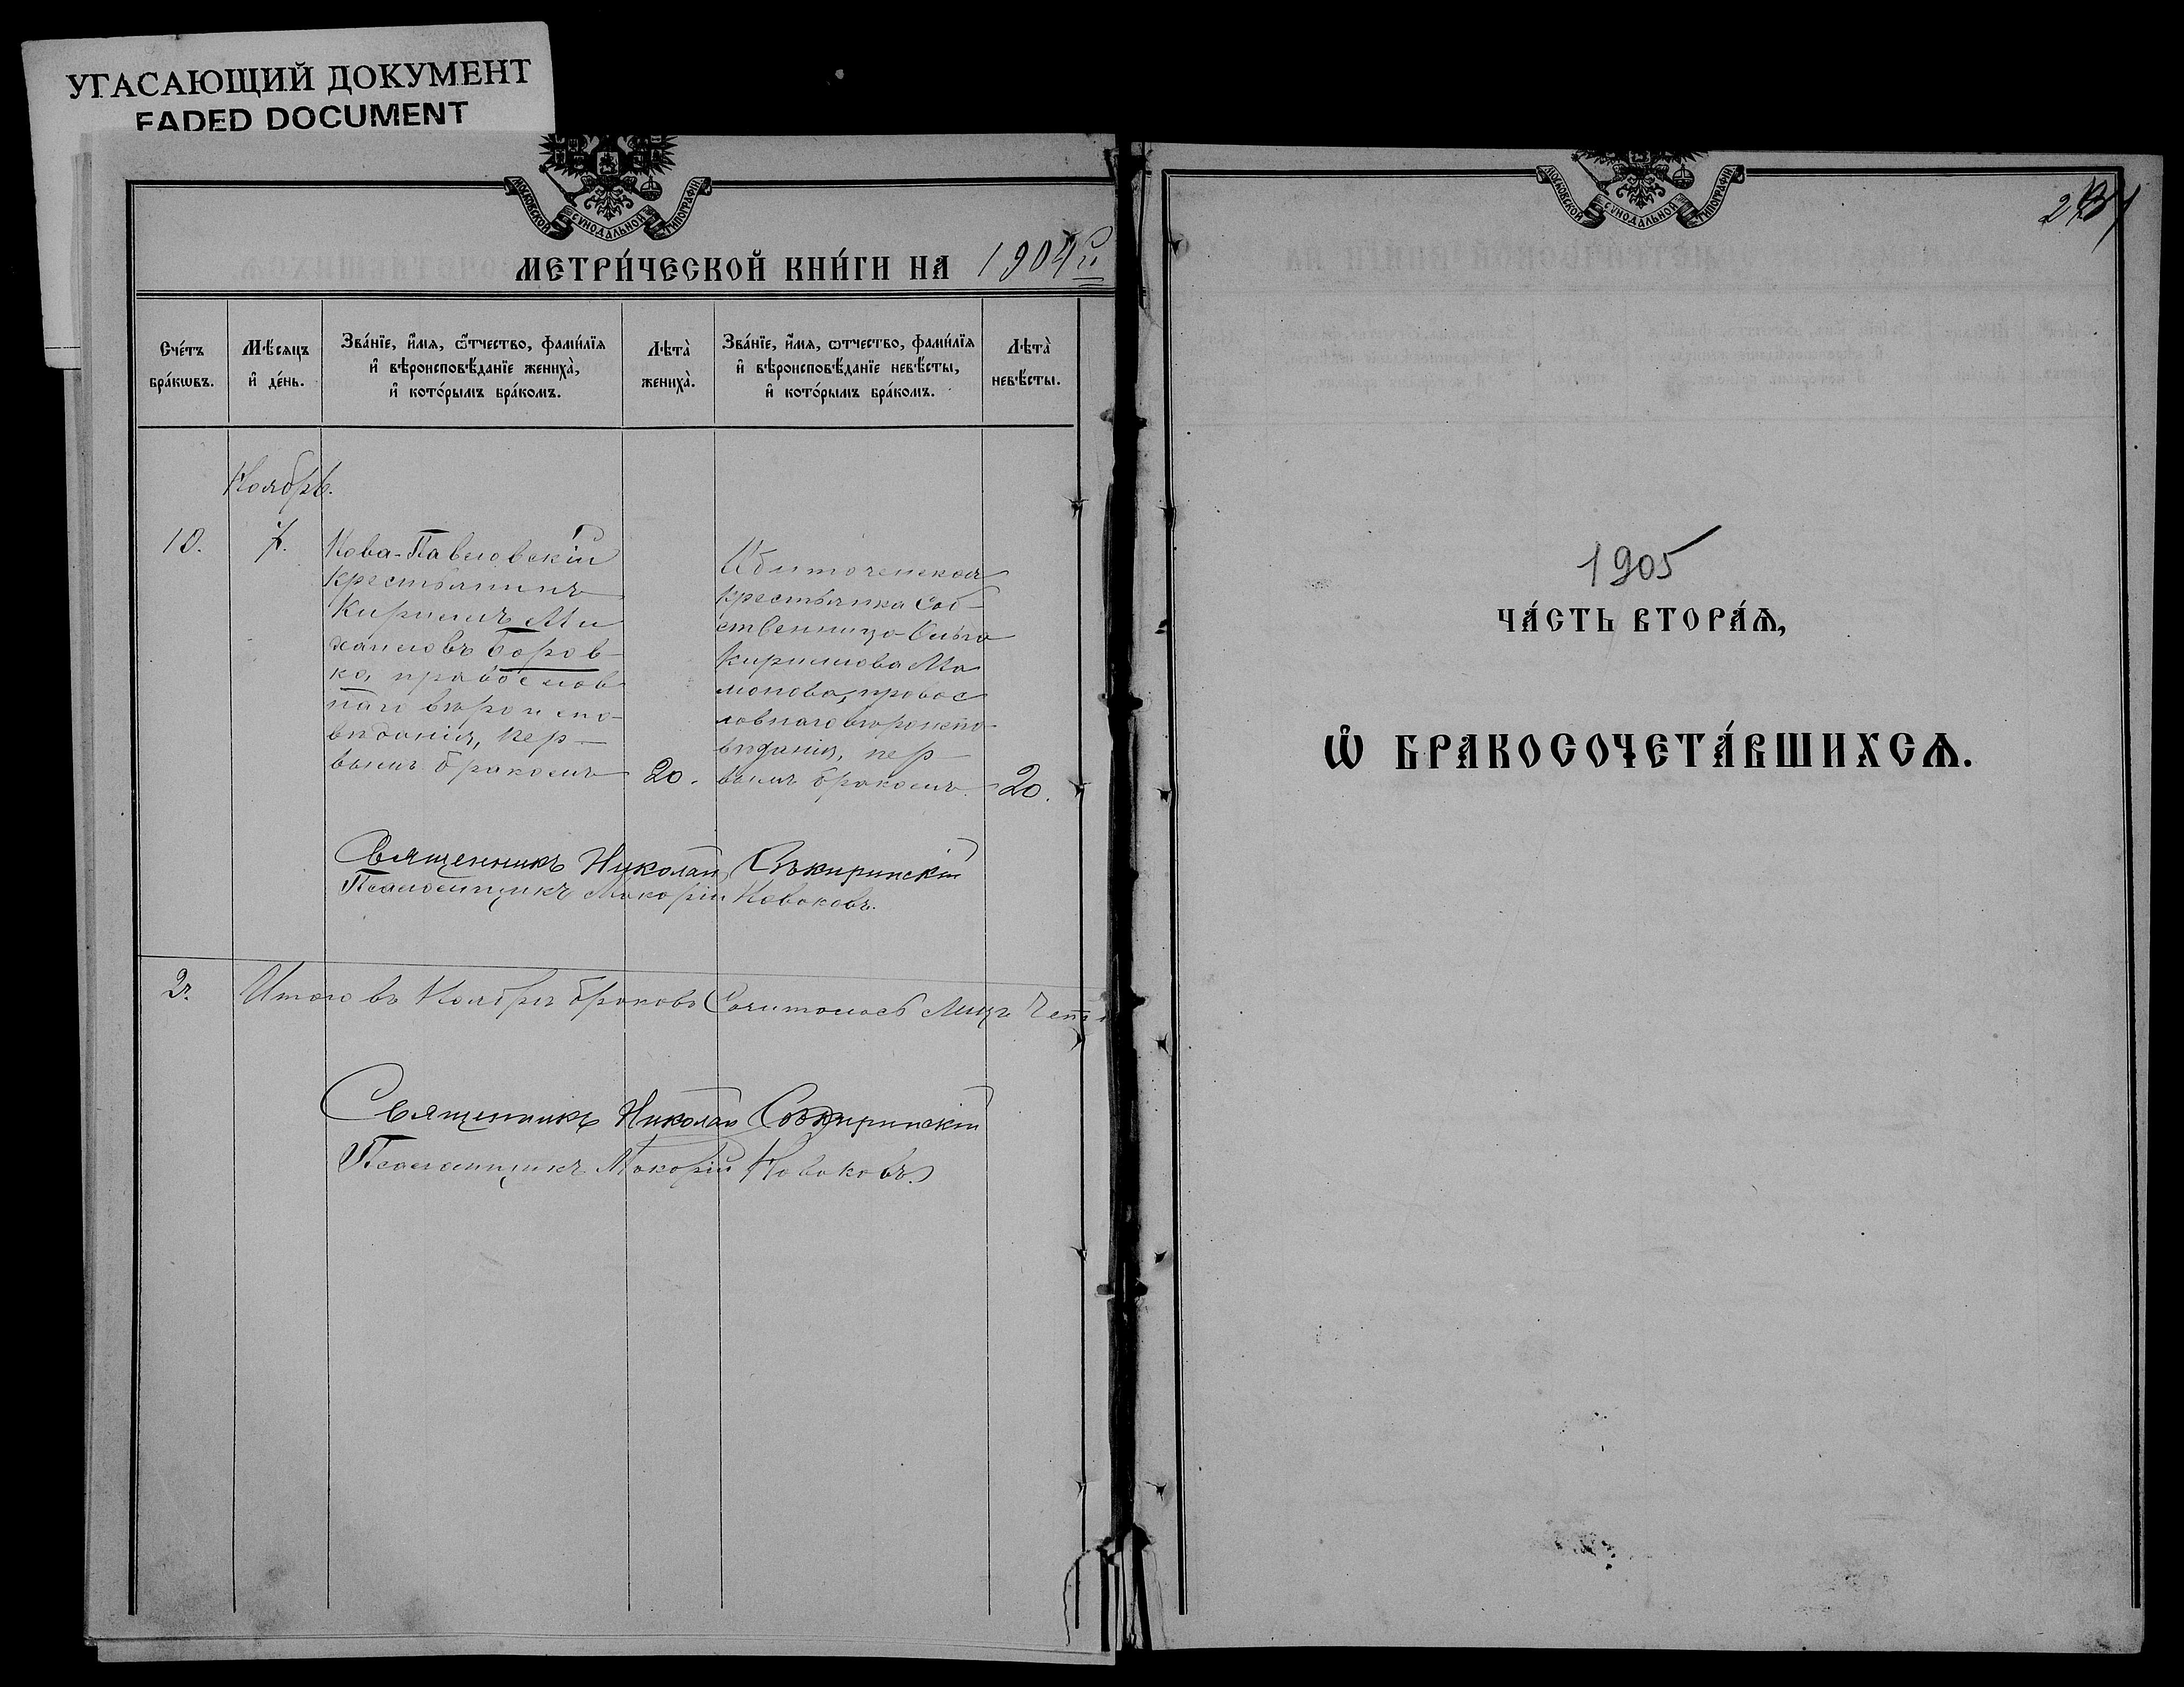 УГАСАЮЩИЙ ДОКУМЕНТ
FADED DOCUMENT
МОСКОВСКОЙ СѴНОДАЛЬНОЙ ТИПОГРАФІИ
МЕТРИ́ЧЕСКОЙ КНИ́ГИ НА 1904й
Сче́тъ бра́кωвъ.
Мѣ́сяцъ и҆ де́нь.
Зва́нїе, и҆́мя, ѿ́тчество, фами́лїя
и҆ вѣроисповѣ́данїе жениха̀,
и҆ кото́рымъ бра́комъ.
Лѣта̀ жениха̀.
Зва́нїе, и҆́мя, ѻтчество, фами́лїя
и҆ вѣроисповѣ́данїе невѣ́сты,
и҆ кото́рымъ бра́комъ.
Лѣта̀ невѣ́сты.
Ноябрь.
10.
7.
Ново-Павловскій
крестьянинъ
Кирилъ Ми
хаиловъ Боров-
ка, православ
наго вѣроиспо-
вѣданія, пер-
вымъ бракомъ
20.
крестьянка соб-
ственница Ольга
Кириллова Ма
монова, правос
лавнаго вѣроиспо-
вѣданія, пер-
вымъ бракомъ
20.
Священникъ Николай Сѣкиринскій
Псаломщикъ Макорій Новаковъ.
2.
Итого въ Ноябрѣ браковъ Сочиталось Лицъ Четы
Священникъ Николай Сѣкиринскій
Псаломщикъ Макорій Новаковъ.
МОСКОВСКОЙ СѴНОДАЛЬНОЙ ТИПОГРАФІИ
1905
ЧА́СТЬ ВТОРА́Ѧ,
Ѽ БРАКОСОЧЕТА́ВШИХСѦ.